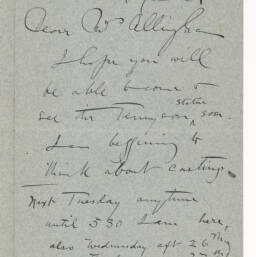 Dear Mr Allingham
I hope you will
be able to come &
see the Tennyson statue soon.
I am beginning to
think about casting
Next Tuesday anytime
until 5 30 I am here,
also Wednesday aft 26